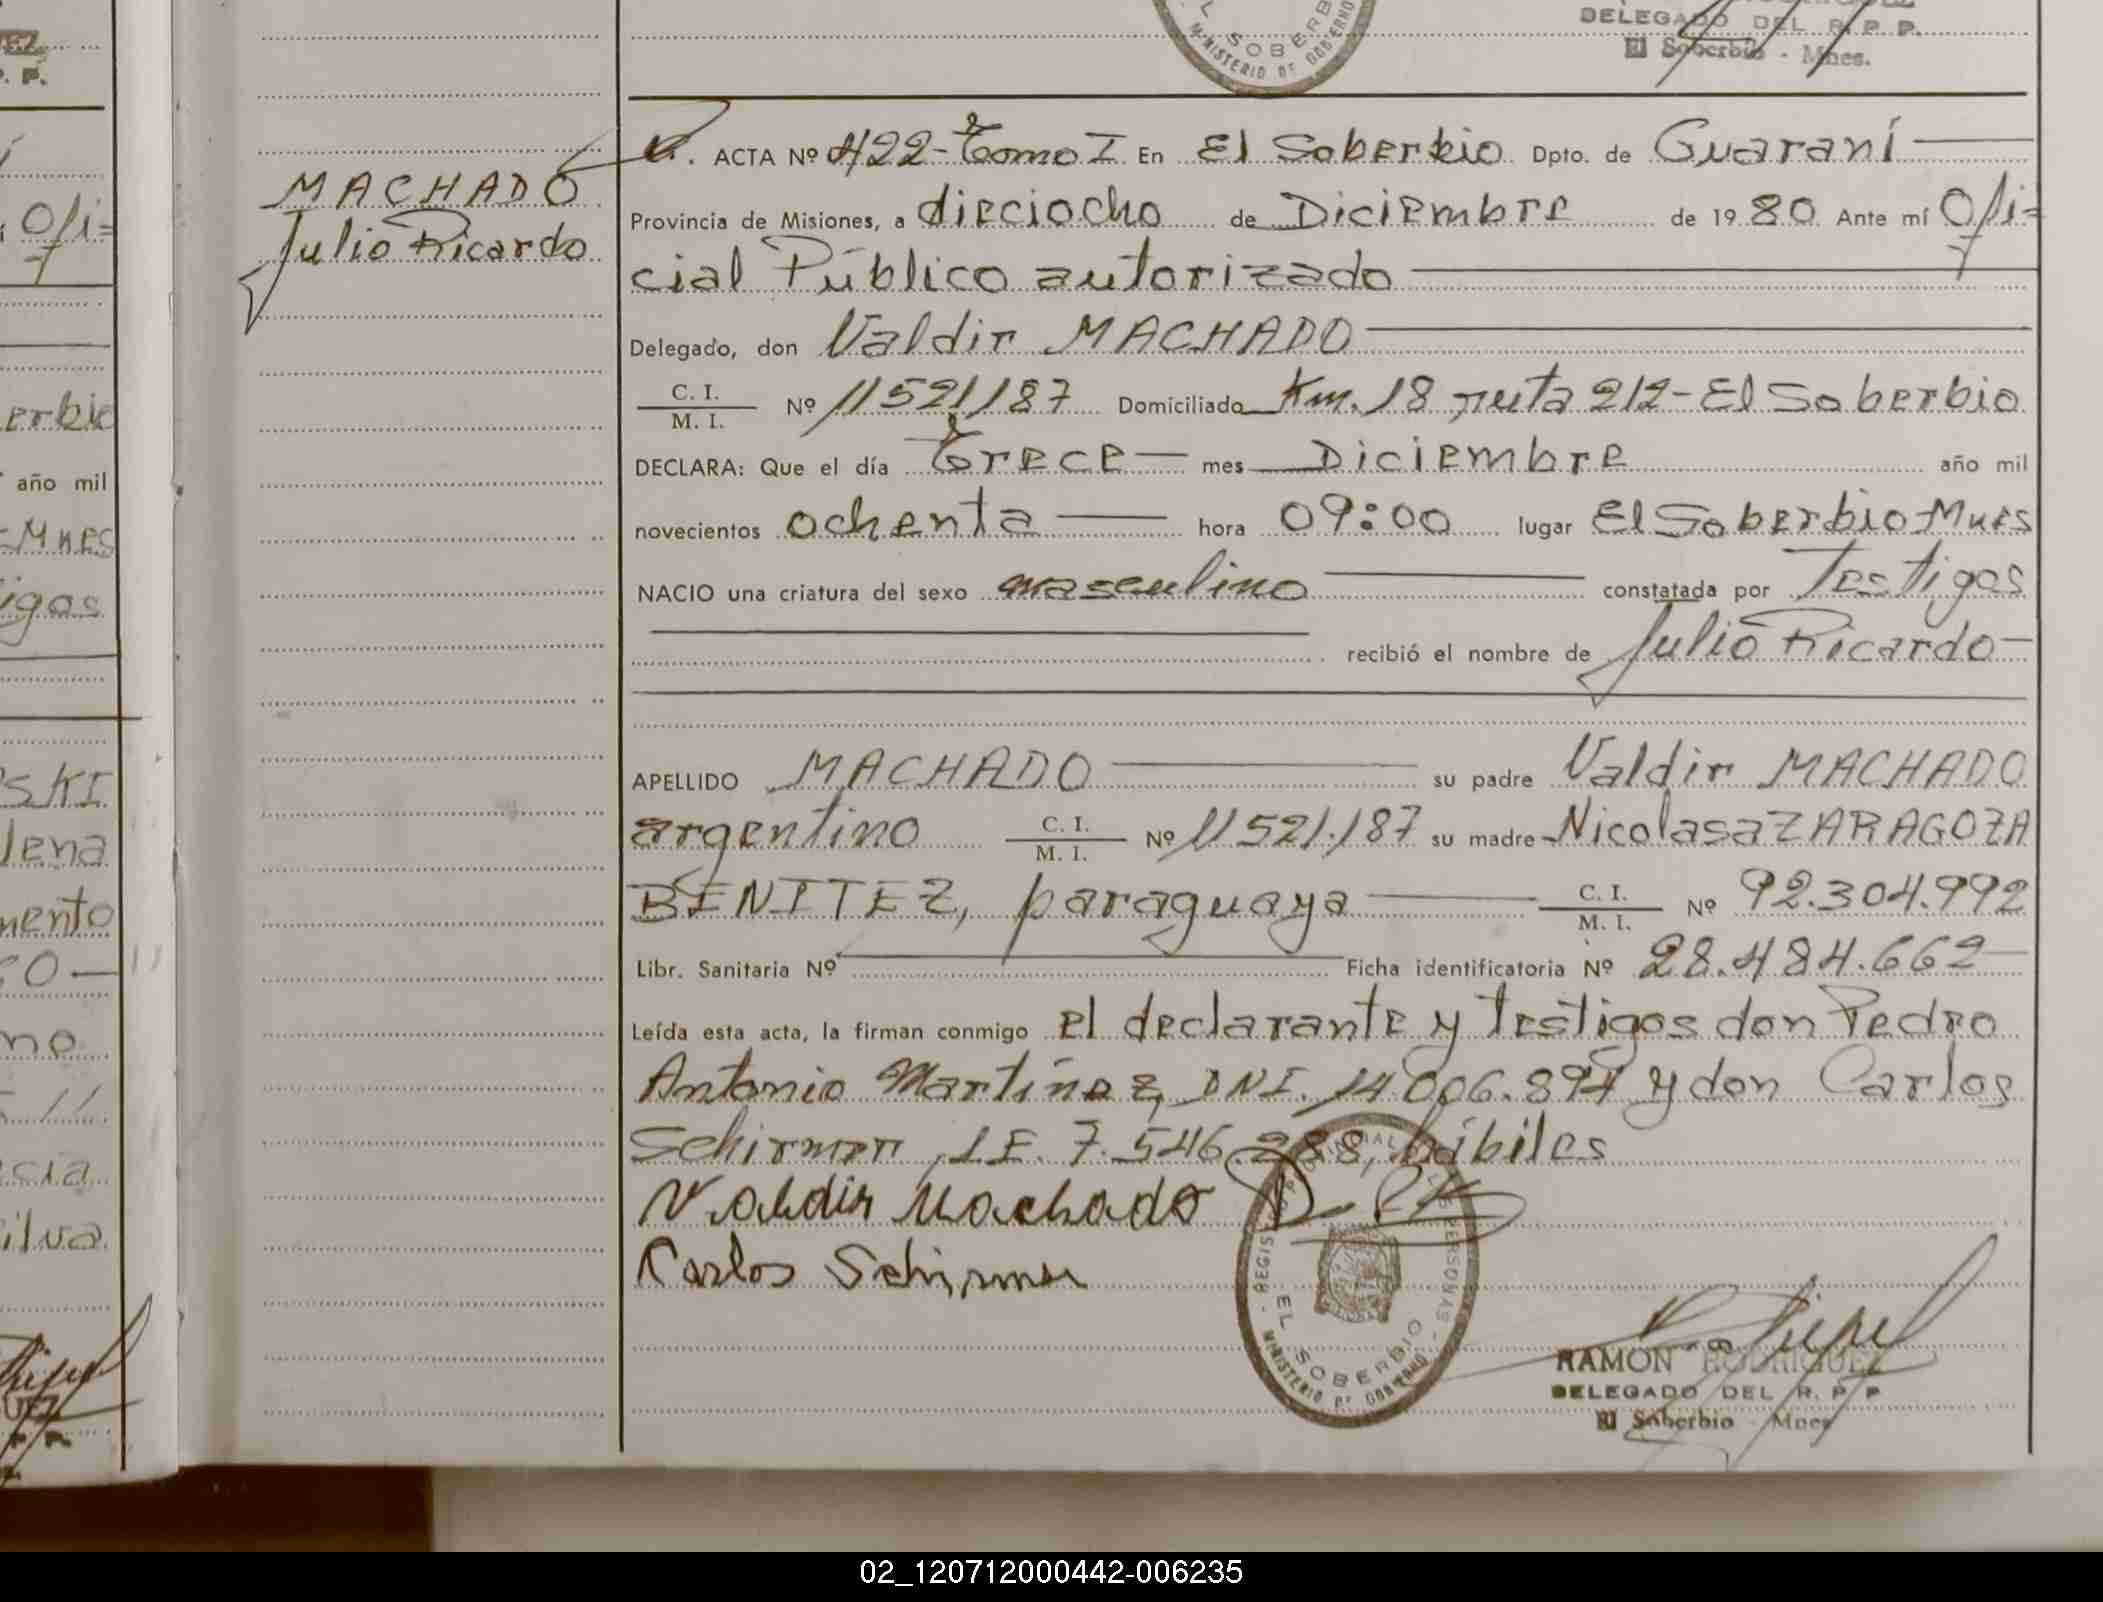 EL SOBERB
MINISTERIO DE GOBIERNO
DELEGADO DEL R. P. P.
El Soberbio - Mnes.
MACHADO
Julio Ricardo
ACTA Nº 422-Tomo I En El Soberbio Dpto. de Guaraní
Provincia de Misiones, a dieciocho de Diciembre de 1980. Ante mí Ofi=
cial Público autorizado
Delegado, don Valdir MACHADO
C. I.
M. I. Nº 11521187 Domiciliado Km. 18 ruta 212-El Soberbio
DECLARA: Que el día Trece mes Diciembre año mil
novecientos ochenta hora 09:00 lugar El Soberbio Mnes
NACIO una criatura del sexo masculino constatada por Testigos
recibió el nombre de Julio Ricardo
APELLIDO MACHADO su padre Valdir MACHADO
argentino C. I. M. I. Nº 11521.187 su madre Nicolasa ZARAGOZA
BENITEZ, paraguaya C. I. M. I. Nº 92.304.992
Libr. Sanitaria Nº Ficha identificatoria Nº 28.484.662
Leída esta acta, la firman conmigo el declarante y testigos don Pedro
Antonio Martínez, DNI. 14.006.894 y don Carlos
Schirmer, LE. 7.546.288, hábiles
Valdir Machado
Carlos Schirmer
EL SOBERBIO
MINISTERIO DE GOBIERNO
RAMON RODRIGUEZ
DELEGADO DEL R. P. P.
El Soberbio Mnes
Ofi=
erbio
año mil
Mnes
igos
SKI
lena
mento
no
ilva
02_120712000442-006235